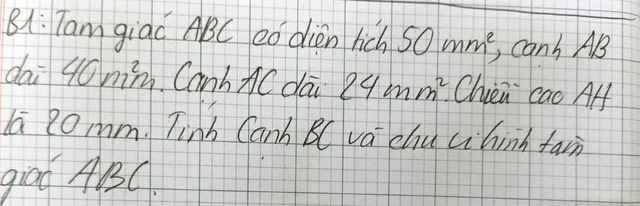 B1: Tam giác ABC có diện tích 50 mm², cạnh AB
dài 40 mm². Cạnh AC dài 24 mm². Chiều cao AH
là 20 mm. Tính Cạnh BC và chu vi hình tam
giác ABC.